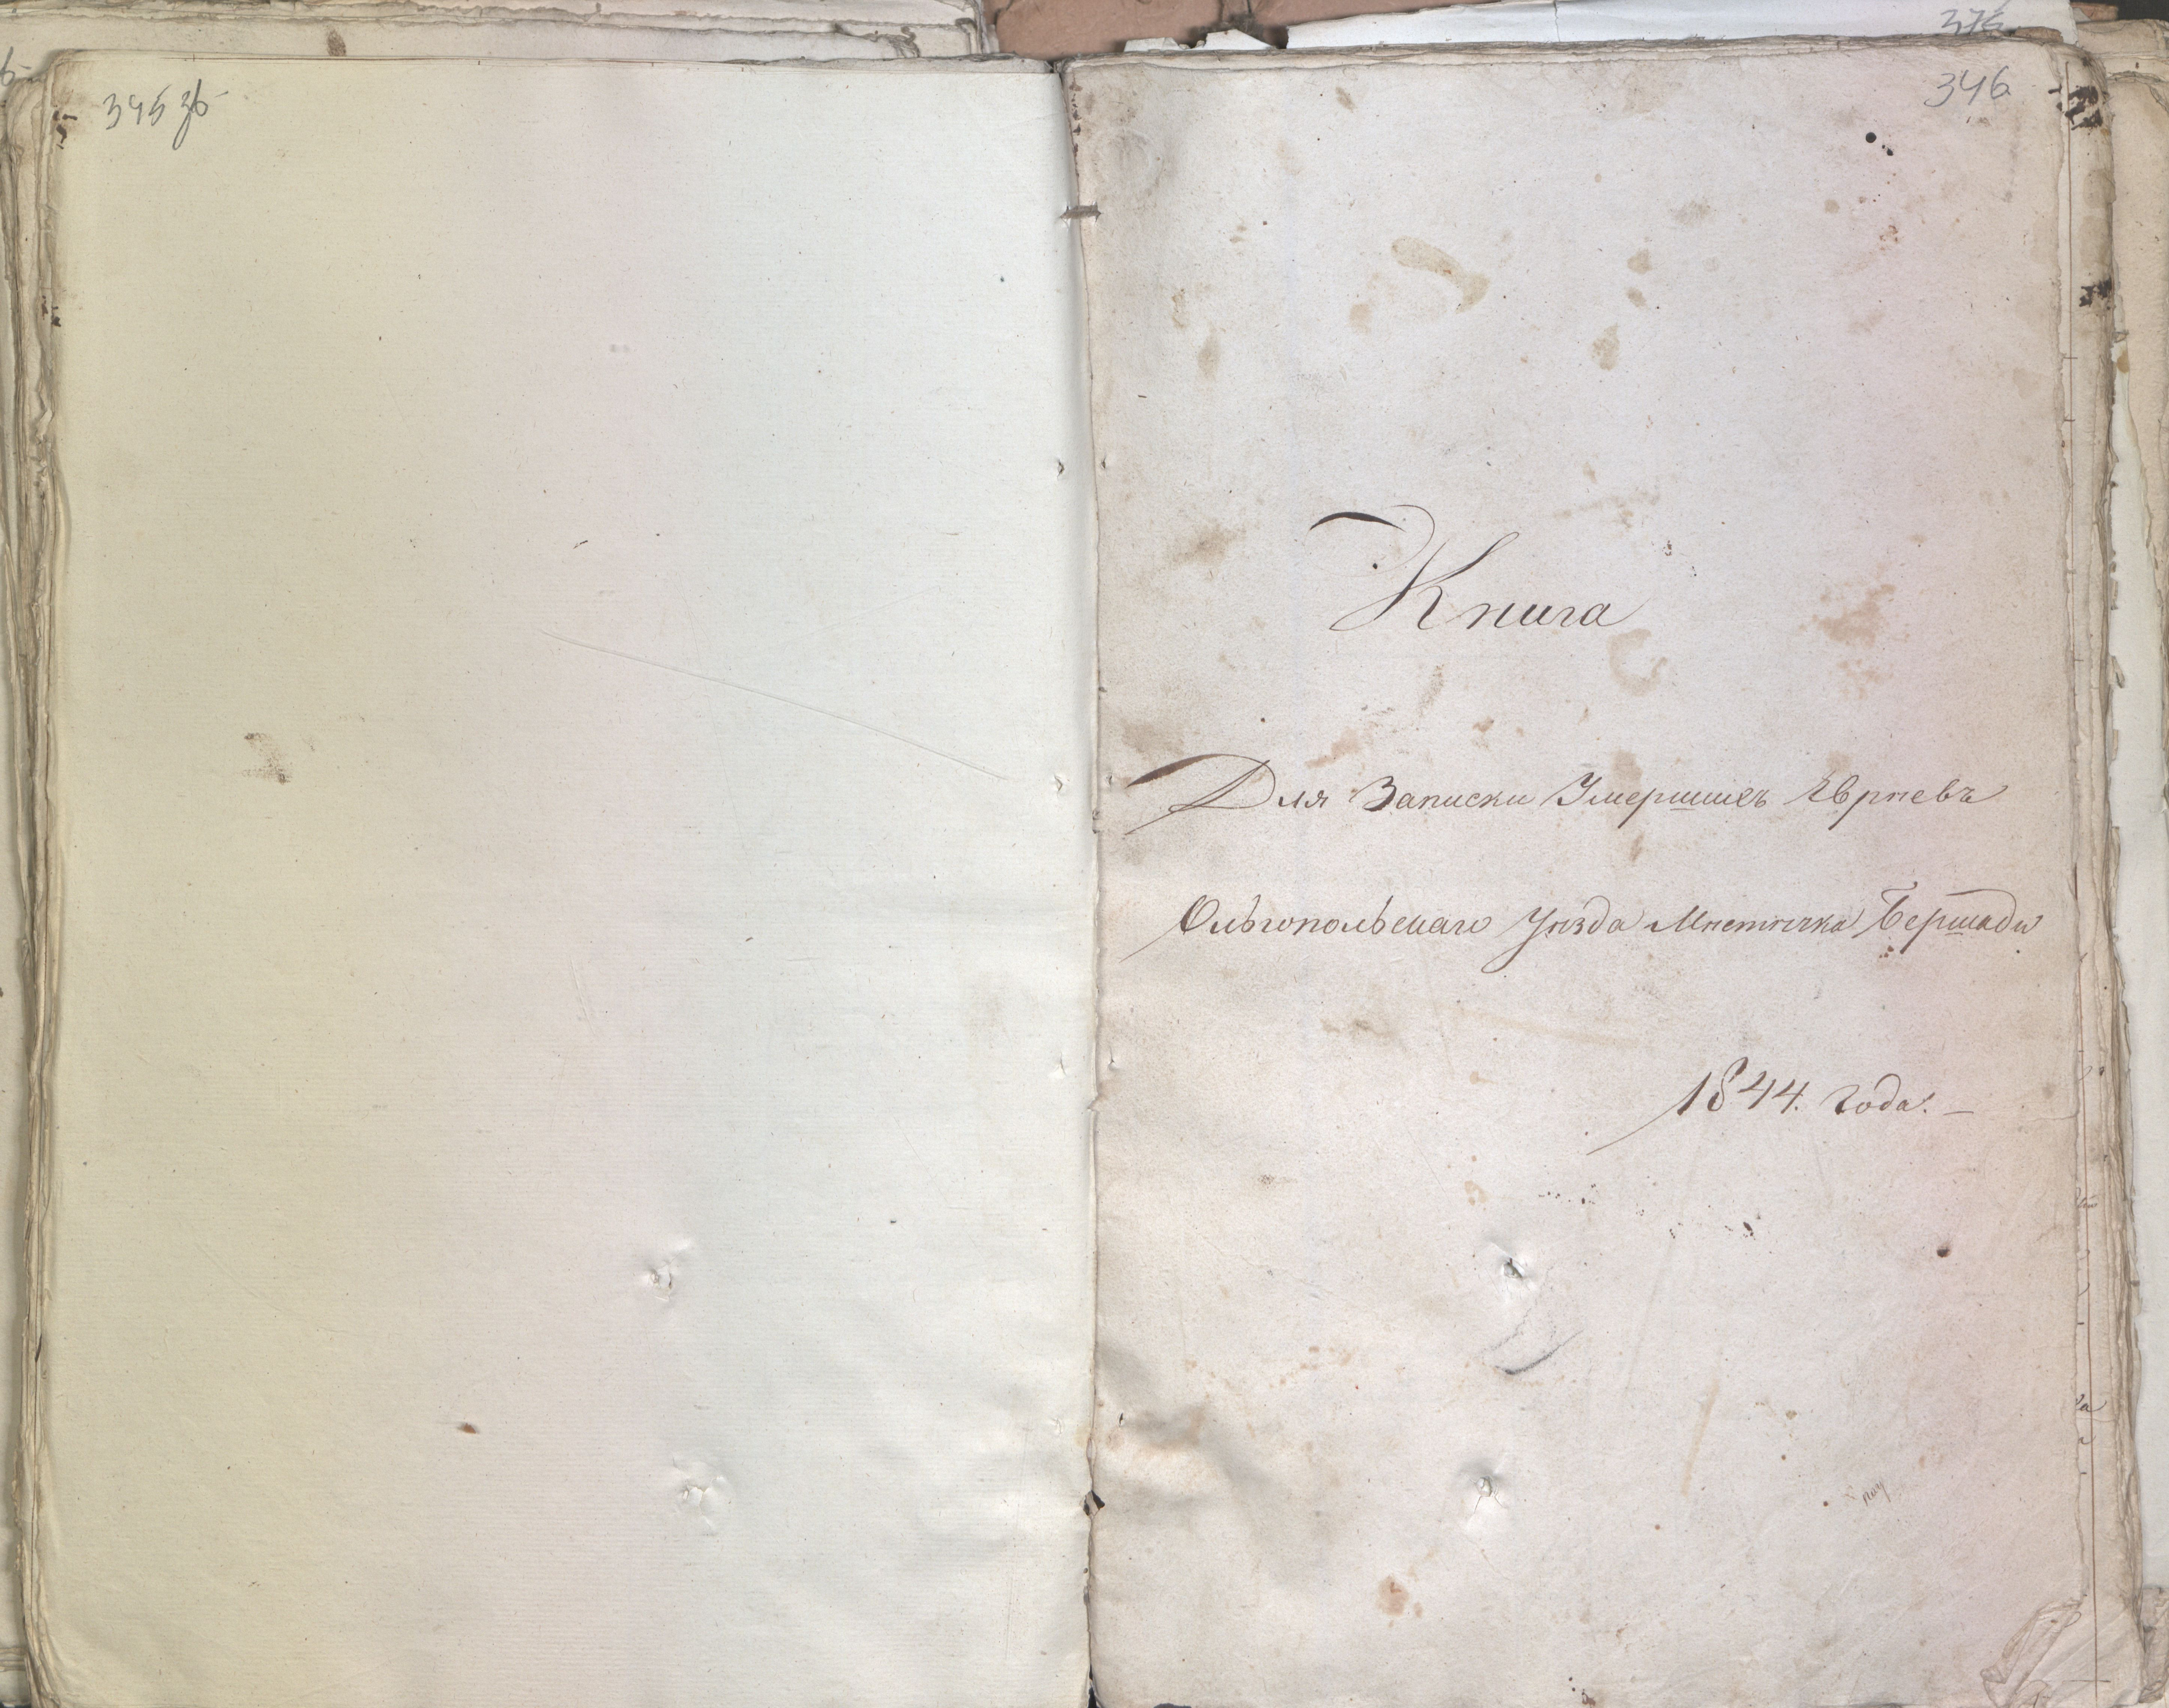 345 зб
346
Книга
Для Записки Умершихъ Евреевъ
Ольгопольскаго Уѣзда Мѣстѣчка Бершади
1844. года. —